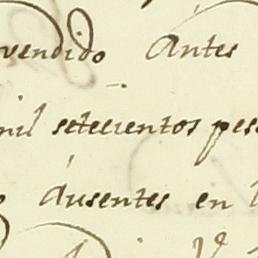 vendido Antes
mil setecientos pes
Ausentes en